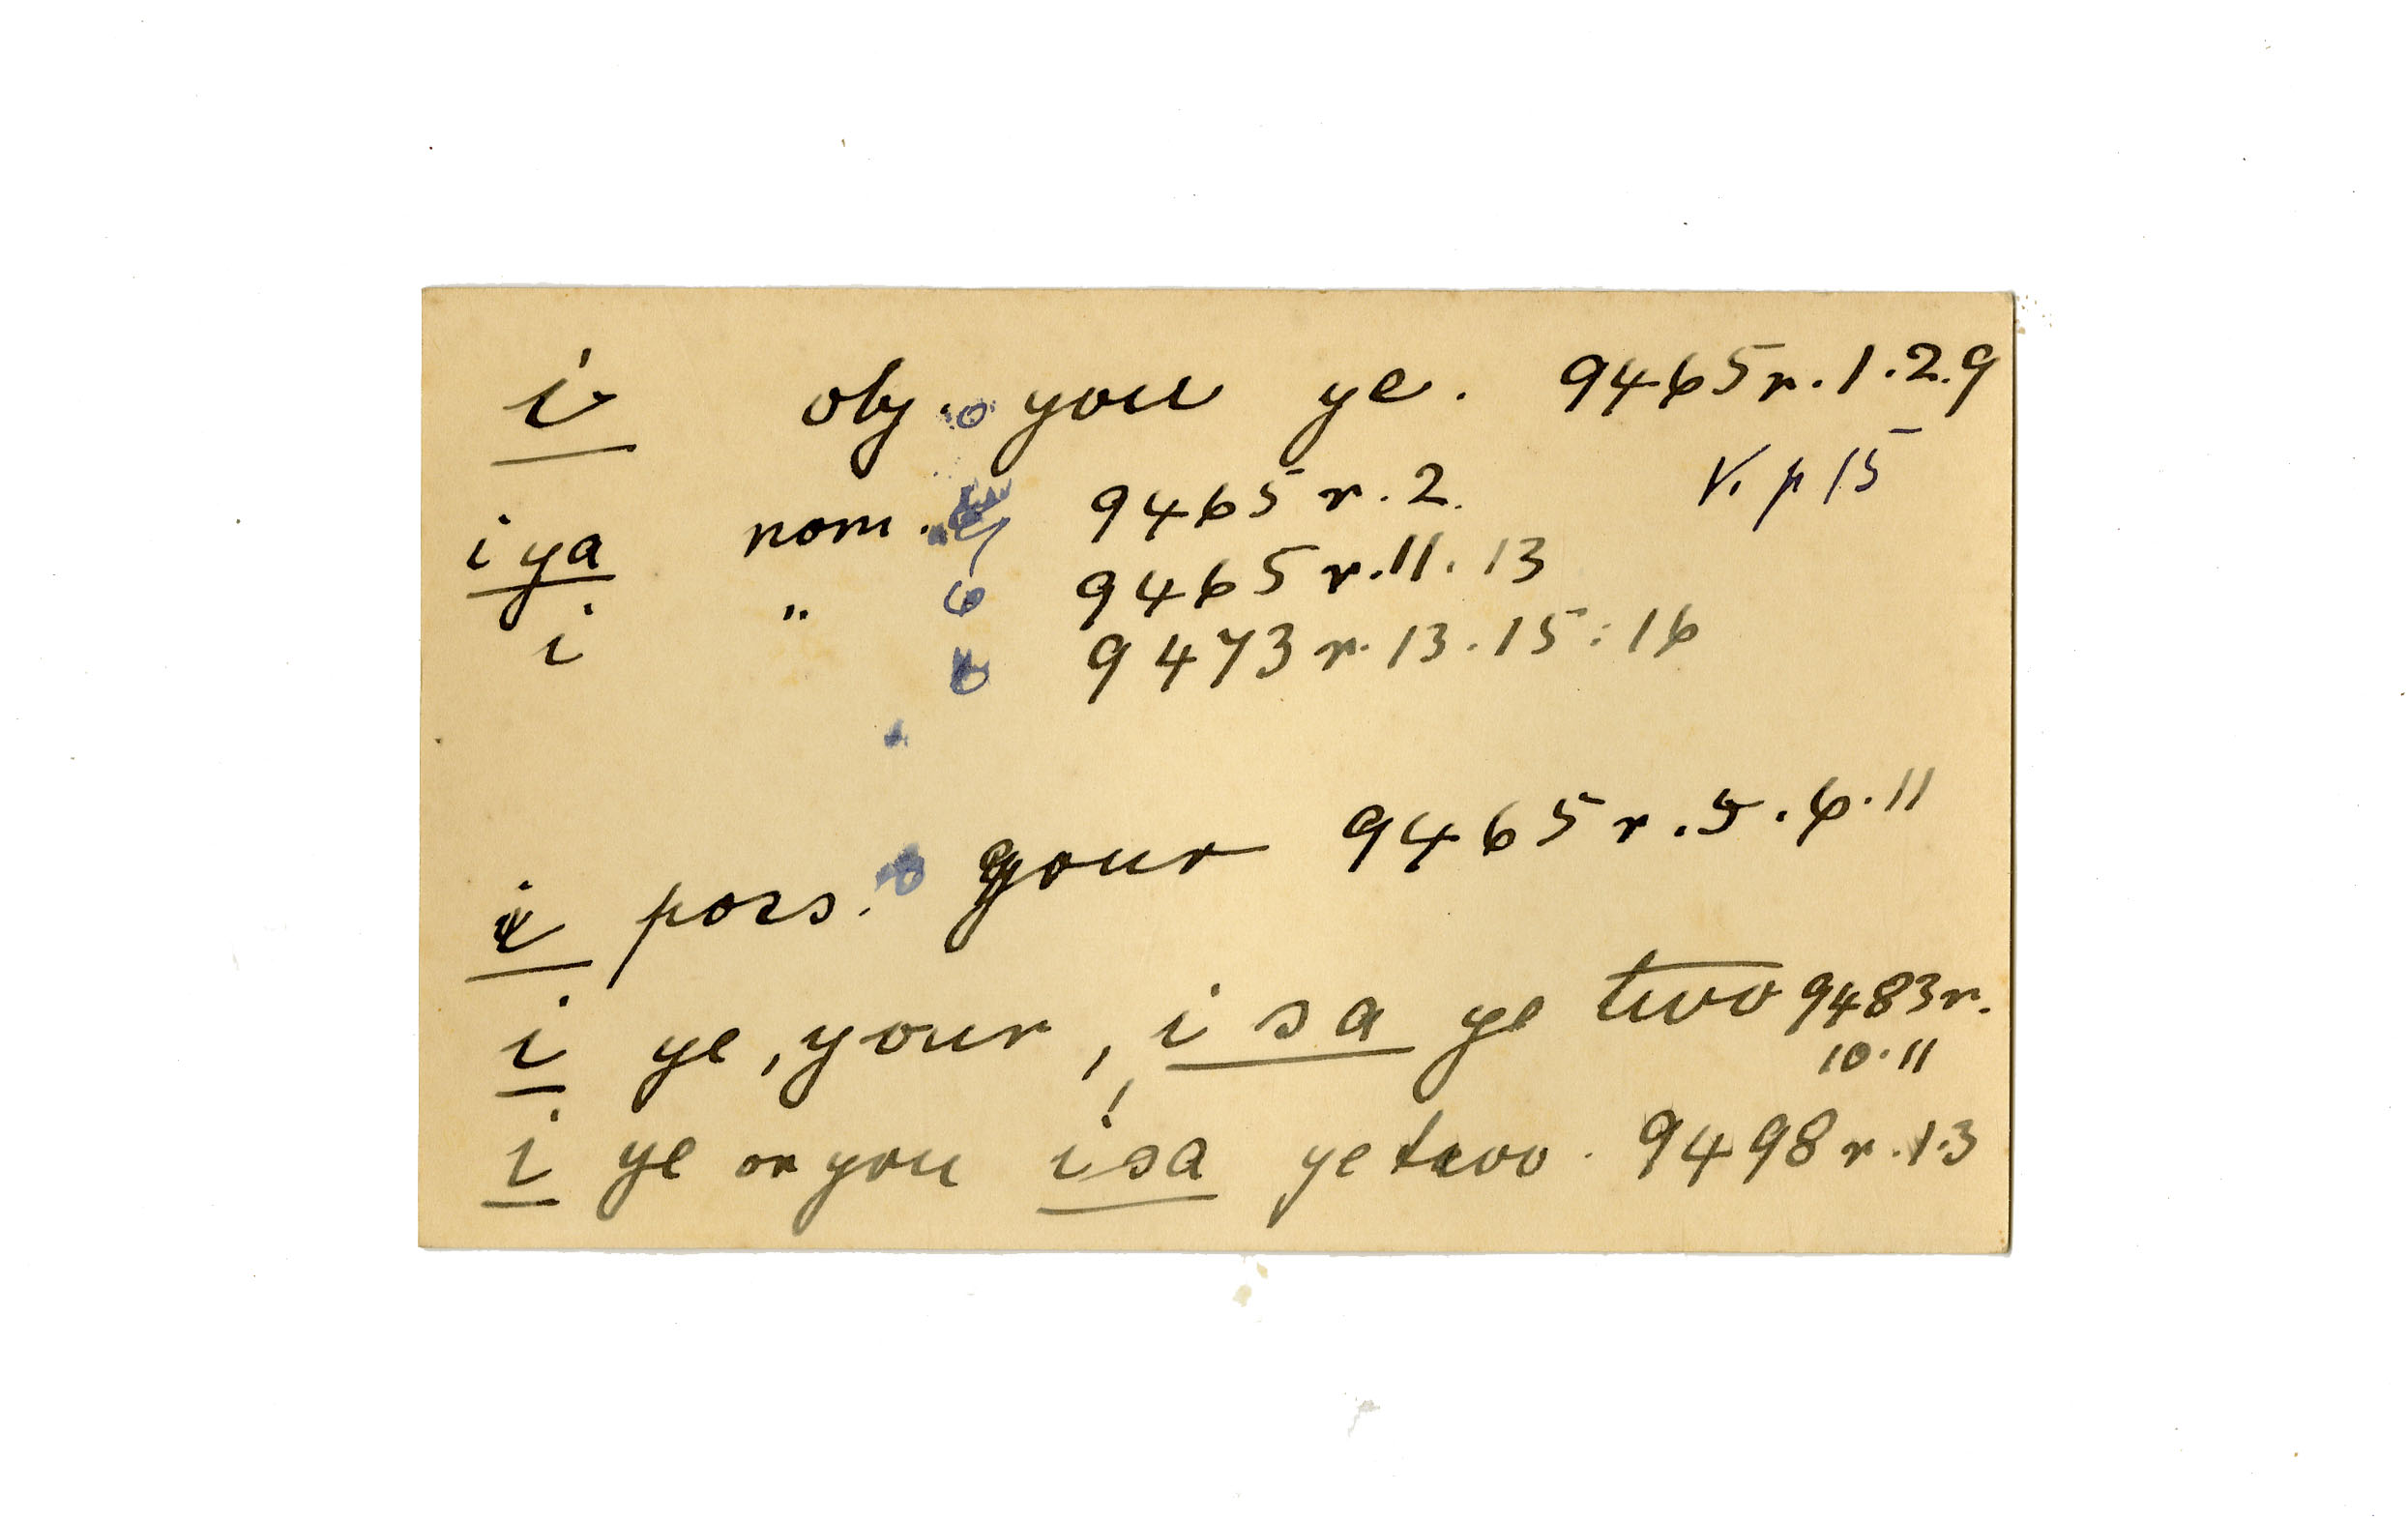 i obj. you ye. 9465 r. 1. 2. 9
V. p 15
iya nom. 9465 r. 2.
i " 9465 r. 11. 13
9473 r. 13. 15. 16
i poss. your 9465 r. 5. 6. 11
i ye, your, isa ye two 9483 r.
10. 11
i ye or you isa ye two. 9498 r. 13